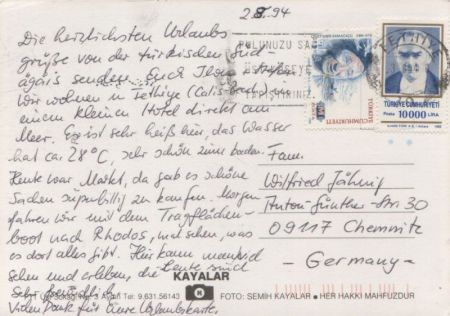 2.8.94
Die herzlichsten Urlaubs-
grüße von der türkischen Süd-
ägäis senden Euch
Wir wohnen in Fethiye (Calis-Beach) in
einem kleinen Hotel direkt am
Meer. Es ist sehr heiß hier, das Wasser
hat ca. 28°C, sehr schön zum baden.
Heute war Markt, da gab es schöne
Sachen superbillig zu kaufen. Morgen
fahren wir mit dem Tragflächen-
boot nach Rhodos, mal sehen, was
es dort alles gibt. Hier kann man viel
sehen und erleben, die Leute sind
sehr freundlich.
Vielen Dank für Eure Urlaubskarte.
POLUNUZU
TÜRKİYE CUMHURİYETİ
FETHİYE
TÜRKİYE CUMHURİYETİ
Posta 10000 LIRA
Fam.
Wilfried Jähnig
Anton-Günther-Str. 30
09117 Chemnitz
- Germany -
KAYALAR
K
Tel: 9.631.56143
FOTO: SEMİH KAYALAR ● HER HAKKI MAHFUZDUR